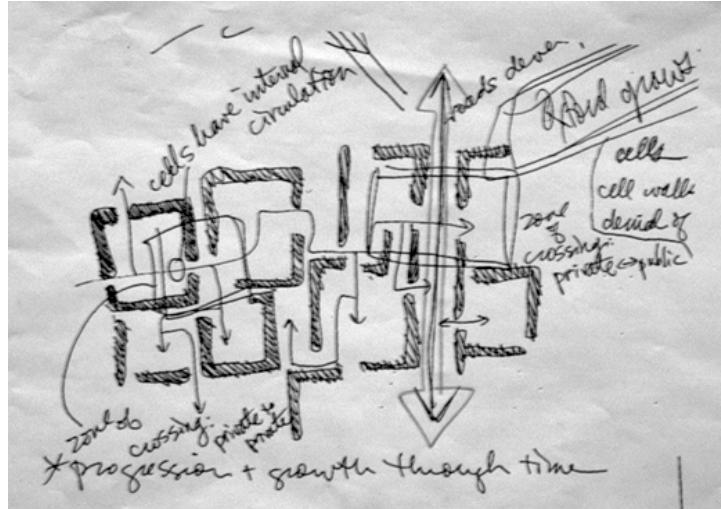 cells have internal
circulation
roads
grows
cells
cell walls
denial of
zone
of
crossing:
private ↔ public
zone of
crossing:
private to
private
* progression + growth through time